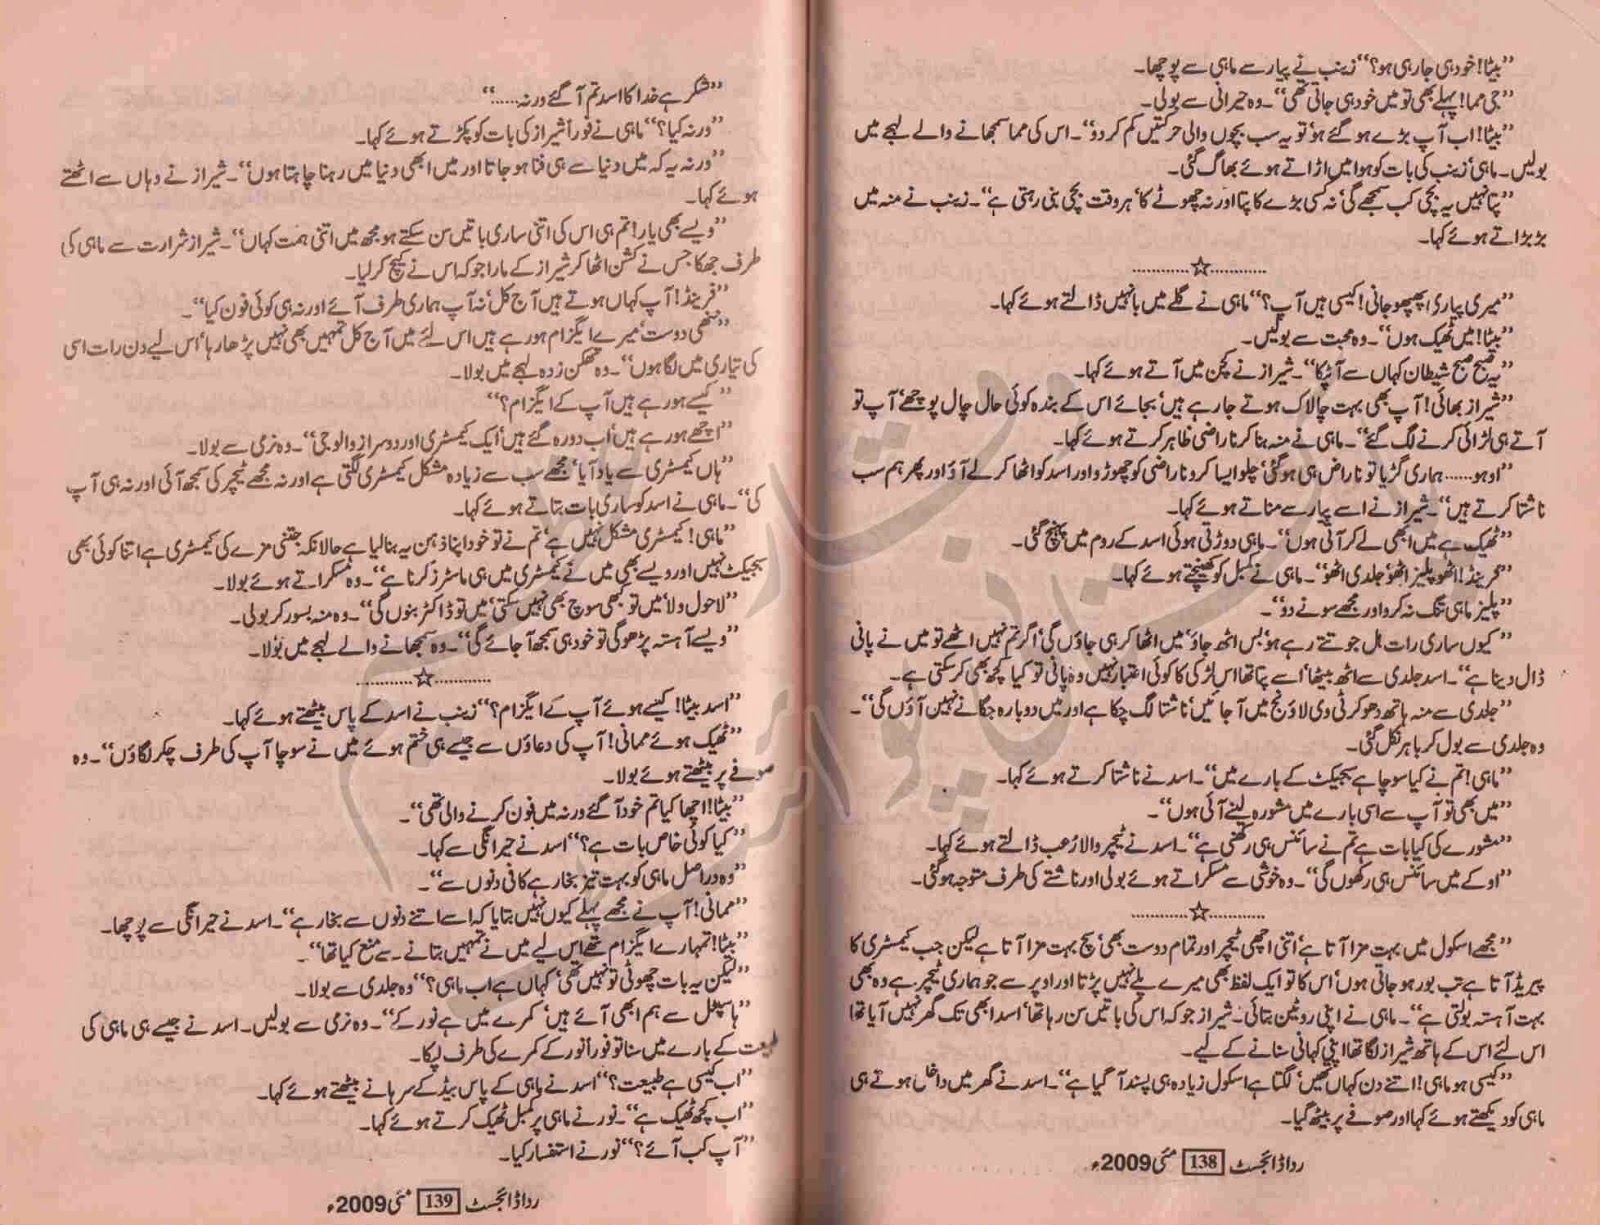 ”بیٹا! خود ہی جا رہی ہو؟“ زینب نے پیار سے ماہی سے پوچھا۔
”جی مما! پہلے بھی تو میں خود ہی جاتی تھی“۔ وہ حیرانی سے بولی۔
”بیٹا! اب آپ بڑے ہو گئے ہو‘ تو یہ سب بچوں والی حرکتیں کم کر دو“۔ اس کی مما سمجھانے والے لہجے میں
بولیں۔ ماہی‘ زینب کی بات کو ہوا میں اڑاتے ہوئے بھاگ گئی۔
”پتا نہیں یہ بچی کب سمجھے گی‘ نہ کسی بڑے کا پتا اور نہ چھوٹے کا‘ ہر وقت بچی بنی رہتی ہے“۔ زینب نے منہ میں
بڑبڑاتے ہوئے کہا۔
............☆............
”میری پیاری پھپھو جانی! کیسی ہیں آپ؟“ ماہی نے گلے میں بانہیں ڈالتے ہوئے کہا۔
”بیٹا! میں ٹھیک ہوں“۔ وہ محبت سے بولیں۔
”یہ صبح صبح شیطان کہاں سے آ ٹپکا“۔ شیراز نے کچن میں آتے ہوئے کہا۔
”شیراز بھائی! آپ بھی بہت چالاک ہوتے جا رہے ہیں‘ بجائے اس کے بندہ کوئی حال چال پوچھے‘ آپ تو
آتے ہی لڑائی کرنے لگ گئے“۔ ماہی نے منہ بنا کر ناراضی ظاہر کرتے ہوئے کہا۔
”اوہو...... ہماری گڑیا تو ناراض ہی ہو گئی‘ چلو ایسا کرو ناراضی کو چھوڑو اور اسد کو اٹھا کر لے آؤ اور پھر ہم سب
ناشتا کرتے ہیں“۔ شیراز نے اسے پیار سے مناتے ہوئے کہا۔
”ٹھیک ہے میں ابھی لے کر آتی ہوں“۔ ماہی دوڑتی ہوئی اسد کے روم میں پہنچ گئی۔
”فرینڈ! اٹھو پلیز اٹھو‘ جلدی اٹھو“۔ ماہی نے کمبل کو کھینچتے ہوئے کہا۔
”پلیز ماہی تنگ نہ کرو اور مجھے سونے دو“۔
”کیوں ساری رات ہل جوتتے رہے ہو‘ بس اٹھ جاؤ‘ میں اٹھا کر ہی جاؤں گی‘ اگر تم نہیں اٹھے تو میں نے پانی
ڈال دینا ہے“۔ اسد جلدی سے اٹھ بیٹھا‘ اسے پتا تھا اس لڑکی کا کوئی اعتبار نہیں وہ پانی تو کیا کچھ بھی کر سکتی ہے۔
”جلدی سے منہ ہاتھ دھو کر ٹی وی لاؤنج میں آ جائیں‘ ناشتا لگ چکا ہے اور میں دوبارہ جگانے نہیں آؤں گی“۔
وہ جلدی سے بول کر باہر نکل گئی۔
”ماہی! تم نے کیا سوچا ہے سبجیکٹ کے بارے میں“۔ اسد نے ناشتا کرتے ہوئے کہا۔
”میں بھی تو آپ سے اسی بارے میں مشورہ لینے آئی ہوں“۔
”مشورے کی کیا بات ہے تم نے سائنس ہی رکھنی ہے“۔ اسد نے ٹیچر والا رعب ڈالتے ہوئے کہا۔
”اوکے میں سائنس ہی رکھوں گی“۔ وہ خوشی سے مسکراتے ہوئے بولی اور ناشتے کی طرف متوجہ ہو گئی۔
............☆............
”مجھے اسکول میں بہت مزا آتا ہے‘ اتنی اچھی ٹیچر اور تمام دوست بھی‘ سچ بہت مزا آتا ہے لیکن جب کیمسٹری کا
پیریڈ آتا ہے تب بور ہو جاتی ہوں‘ اس کا تو ایک لفظ بھی میرے پلے نہیں پڑتا اور اوپر سے جو ہماری ٹیچر ہے وہ بھی
بہت آہستہ بولتی ہے“۔ ماہی نے اپنی روٹین بتائی۔ شیراز جو کہ اس کی باتیں سن رہا تھا‘ اسد ابھی تک گھر نہیں آیا تھا
اس لئے اس کے ہاتھ شیراز لگا تھا اپنی کہانی سنانے کے لیے۔
”کیسی ہو ماہی! اتنے دن کہاں تھیں‘ لگتا ہے اسکول زیادہ ہی پسند آ گیا ہے“۔ اسد نے گھر میں داخل ہوتے ہی
ماہی کو دیکھتے ہوئے کہا اور صوفے پر بیٹھ گیا۔
ردا ڈائجسٹ 138 مئی 2009ء
”شکر ہے خدا کا اسد تم آ گئے ورنہ......“
”ورنہ کیا؟“ ماہی نے فوراً شیراز کی بات کو پکڑتے ہوئے کہا۔
”ورنہ یہ کہ میں دنیا سے ہی فنا ہو جاتا اور میں ابھی دنیا میں رہنا چاہتا ہوں“۔ شیراز نے وہاں سے اٹھتے
ہوئے کہا۔
”ویسے بھی یار! تم ہی اس کی اتنی ساری باتیں سن سکتے ہو مجھ میں اتنی ہمت کہاں“۔ شیراز شرارت سے ماہی کی
طرف جھکا جس نے کشن اٹھا کر شیراز کے مارا جو کہ اس نے کیچ کر لیا۔
”فرینڈ! آپ کہاں ہوتے ہیں آج کل‘ نہ آپ ہماری طرف آئے اور نہ ہی کوئی فون کیا“۔
”ننھی دوست‘ میرے ایگزام ہو رہے ہیں اس لئے میں آج کل تمہیں بھی نہیں پڑھا رہا‘ اس لیے دن رات اسی
کی تیاری میں لگا ہوں“۔ وہ تھکن زدہ لہجے میں بولا۔
”کیسے ہو رہے ہیں آپ کے ایگزام؟“
”اچھے ہو رہے ہیں‘ اب دو رہ گئے ہیں‘ ایک کیمسٹری اور دوسرا زوالوجی“۔ وہ نرمی سے بولا۔
”ہاں کیمسٹری سے یاد آیا‘ مجھے سب سے زیادہ مشکل کیمسٹری لگتی ہے اور نہ مجھے ٹیچر کی سمجھ آئی اور نہ ہی آپ
کی“۔ ماہی نے اسد کو ساری بات بتاتے ہوئے کہا۔
”ماہی! کیمسٹری مشکل نہیں ہے‘ تم نے تو خود اپنا ذہن یہ بنا لیا ہے حالانکہ جتنی مزے کی کیمسٹری ہے اتنا کوئی بھی
سبجیکٹ نہیں اور ویسے بھی میں نے کیمسٹری میں ہی ماسٹرز کرنا ہے“۔ وہ مسکراتے ہوئے بولا۔
”لاحول ولا‘ میں تو کبھی سوچ بھی نہیں سکتی‘ میں تو ڈاکٹر بنوں گی“۔ وہ منہ بسور کر بولی۔
”ویسے آہستہ پڑھو گی تو خود ہی سمجھ آ جائے گی“۔ وہ سمجھانے والے لہجے میں بولا۔
............☆............
”اسد بیٹا! کیسے ہوئے آپ کے ایگزام؟“ زینب نے اسد کے پاس بیٹھتے ہوئے کہا۔
”ٹھیک ہوئے ممانی! آپ کی دعاؤں سے جیسے ہی ختم ہوئے میں نے سوچا آپ کی طرف چکر لگاؤں“۔ وہ
صوفے پر بیٹھتے ہوئے بولا۔
”بیٹا! اچھا کیا تم خود آ گئے ورنہ میں فون کرنے والی تھی“۔
”کیا کوئی خاص بات ہے؟“ اسد نے حیرانگی سے کہا۔
”وہ دراصل ماہی کو بہت تیز بخار ہے کافی دنوں سے“۔
”ممانی! آپ نے مجھے پہلے کیوں نہیں بتایا کہ اسے اتنے دنوں سے بخار ہے“۔ اسد نے حیرانگی سے پوچھا۔
”بیٹا! تمہارے ایگزام تھے اس لیے میں نے تمہیں بتانے سے منع کیا تھا“۔
”لیکن یہ بات چھوٹی تو نہیں تھی‘ کہاں ہے اب ماہی؟“ وہ جلدی سے بولا۔
”ہاسپٹل سے ہم ابھی آئے ہیں‘ کمرے میں ہے نور کے“۔ وہ نرمی سے بولیں۔ اسد نے جیسے ہی ماہی کی
طبیعت کے بارے میں سنا تو فوراً نور کے کمرے کی طرف لپکا۔
”اب کیسی ہے طبیعت؟“ اسد نے ماہی کے پاس بیڈ کے سرہانے بیٹھتے ہوئے کہا۔
”اب کچھ ٹھیک ہے“۔ نور نے ماہی پر کمبل ٹھیک کرتے ہوئے کہا۔
”آپ کب آئے؟“ نور نے استفسار کیا۔
ردا ڈائجسٹ 139 مئی 2009ء